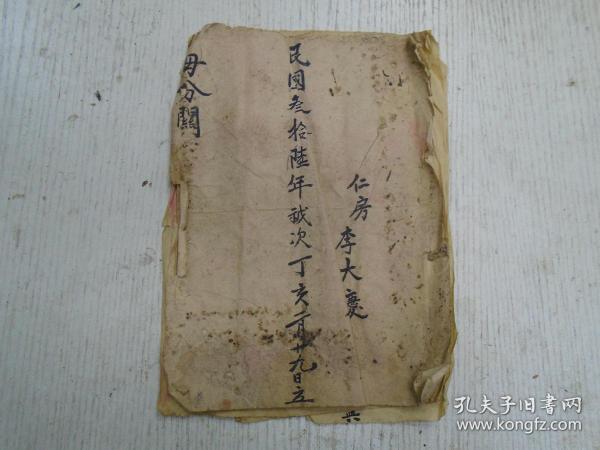 仁房李大慶
民國叁拾陸年歲次丁亥二月廿九日立
毋分關
孔夫子旧書网
www.kongfz.com